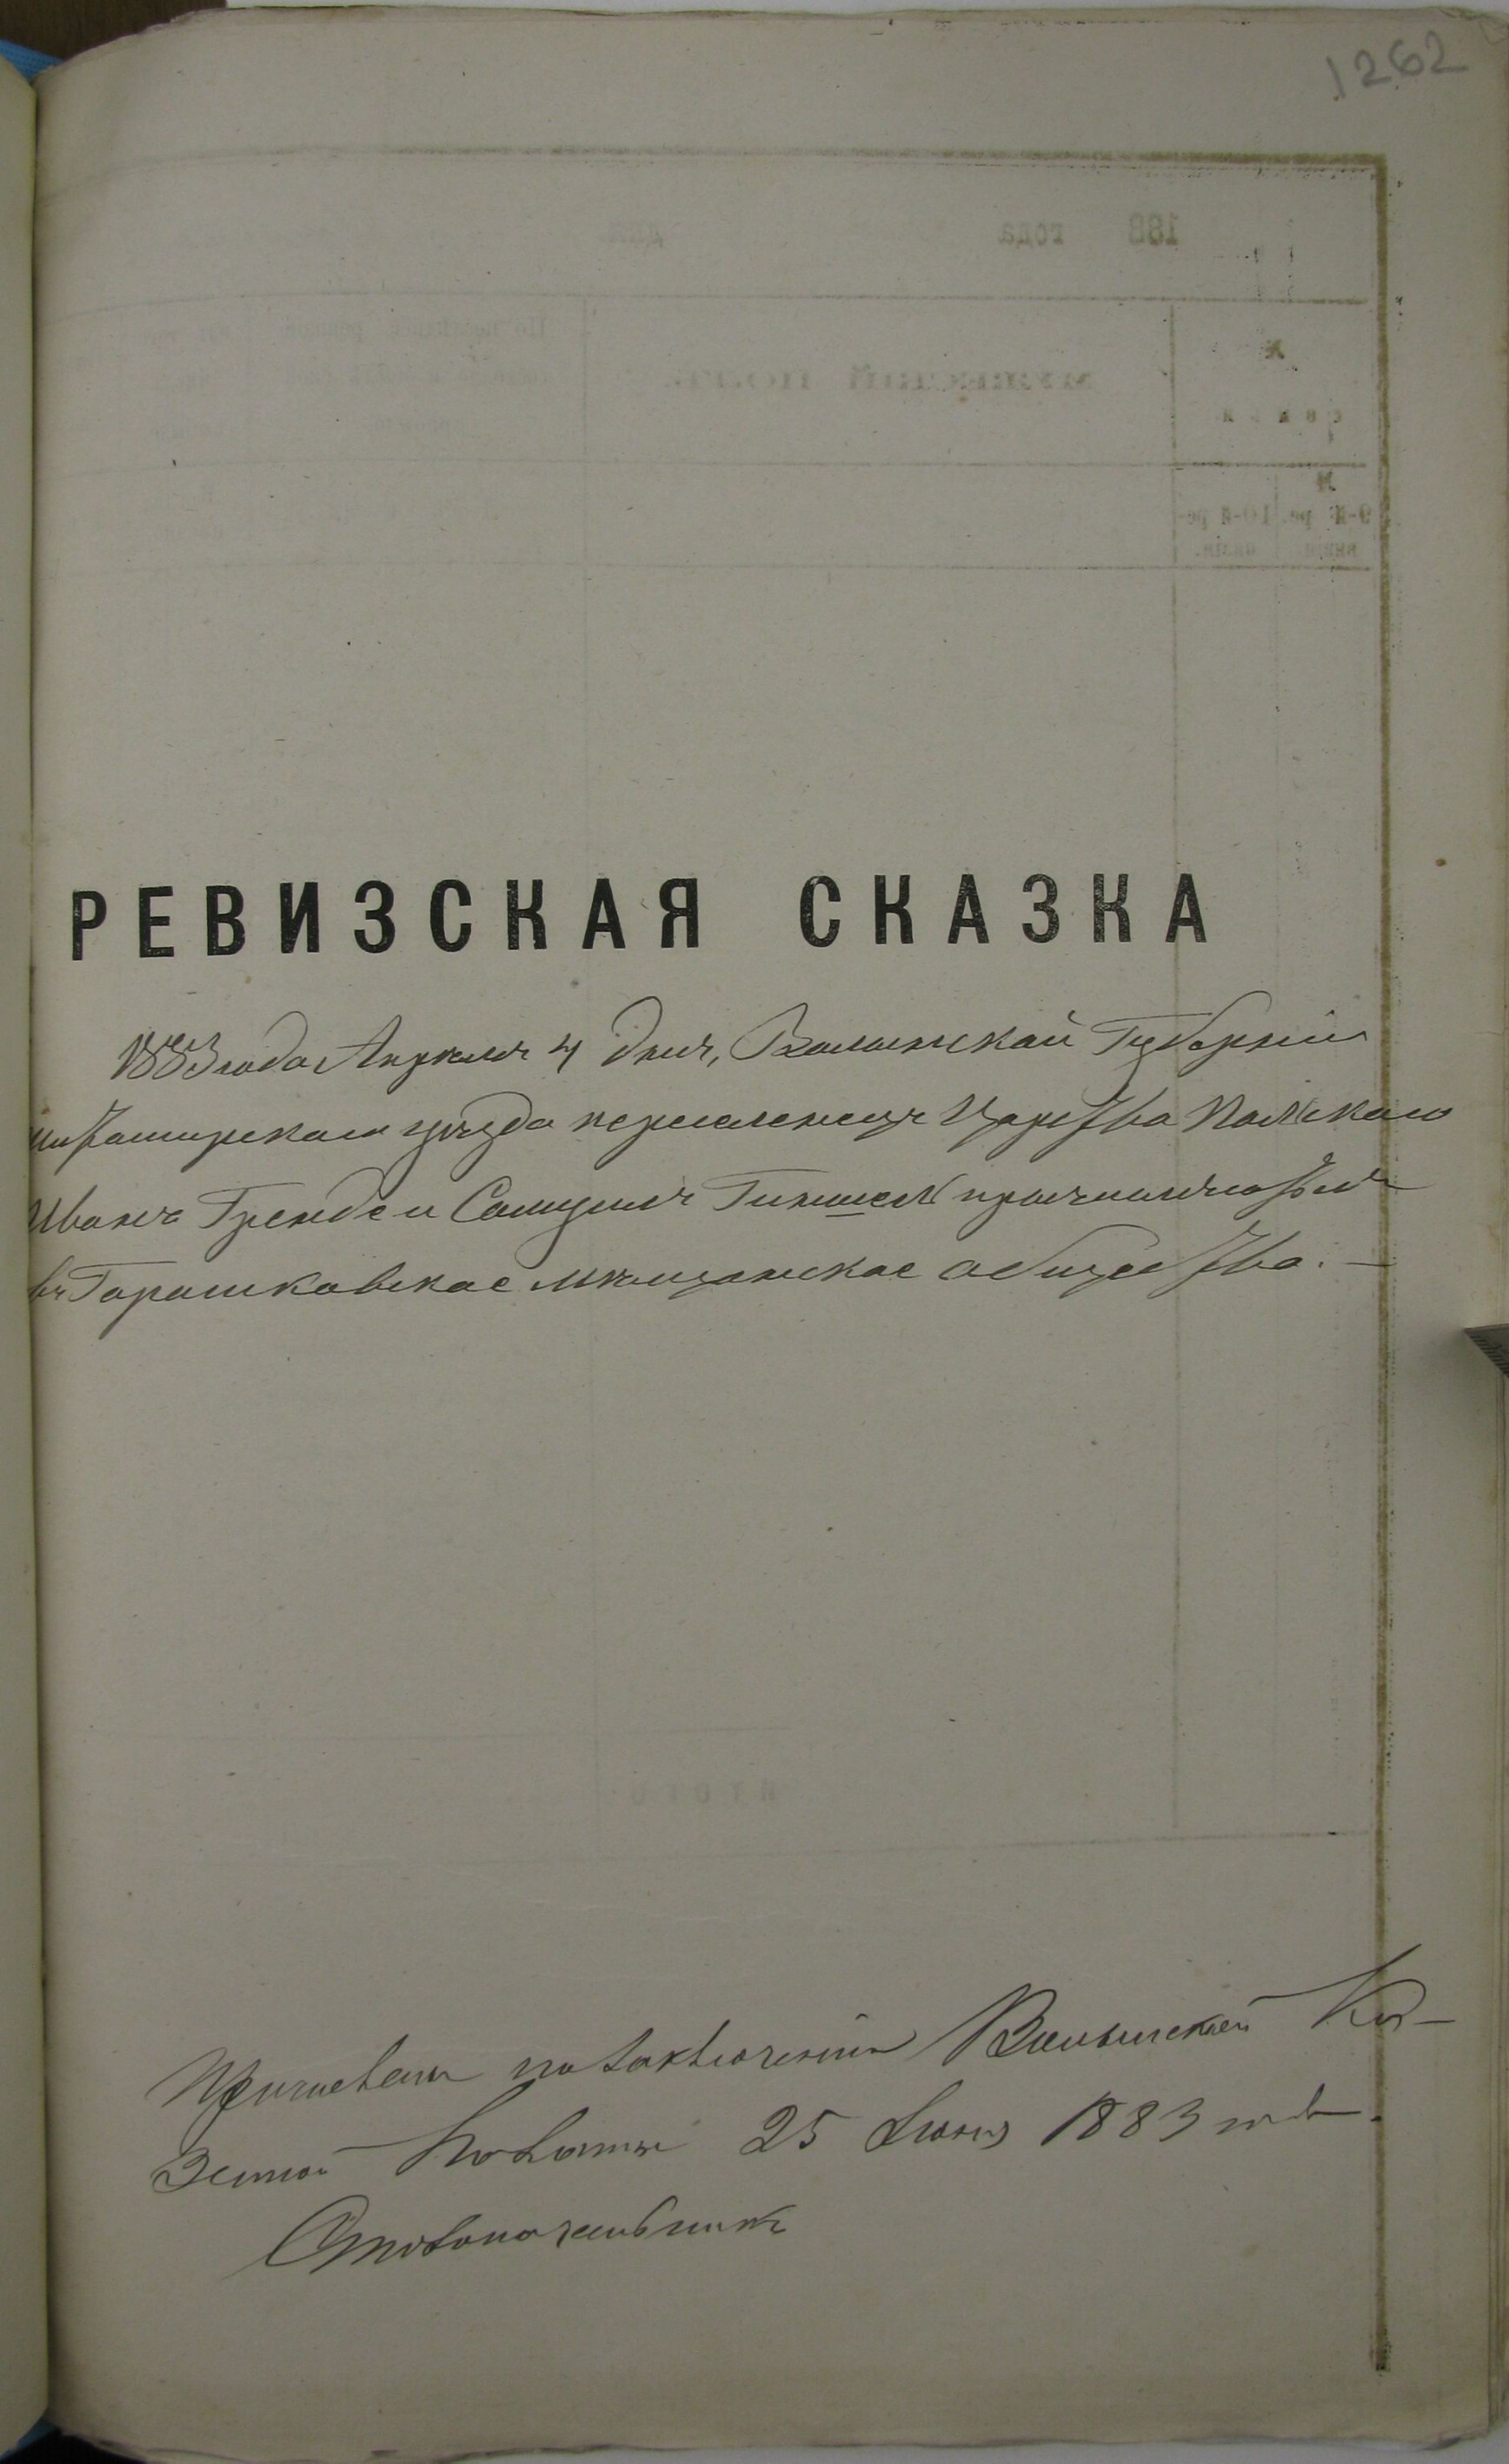 1262
РЕВИЗСКАЯ СКАЗКА
1883 года Апреля 4 дня, Волынской Губерніи
Житомирского уѣзда переселенцъ Царства Польскаго
Иванъ Гренде и Самуилъ Гиншель причисляются
въ Горошковское мѣщанское общество. —
Причислены по заключенію Волынской Ка-
зенной Палаты 25 Іюня 1883 года.
Столоначальникъ